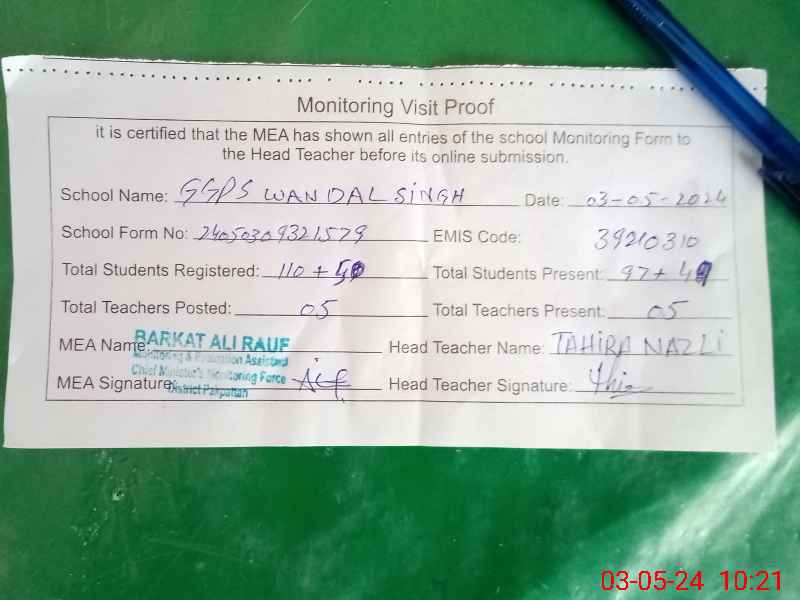 Monitoring Visit Proof
it is certified that the MEA has shown all entries of the school Monitoring Form to
the Head Teacher before its online submission.
School Name: GGPS WANDAL SINGH Date: 03-05-2024
School Form No: 24050309321579 EMIS Code: 39210310
Total Students Registered: 110 + Total Students Present: 97 +
Total Teachers Posted: 05 Total Teachers Present: 05
MEA Name: BARKAT ALI RAUF Head Teacher Name: TAHIRA NAZLI
Monitoring & Evaluation Assistant
Chief Minister's Monitoring Force
MEA Signature: Head Teacher Signature:
District Pakpattan
03-05-24 10:21